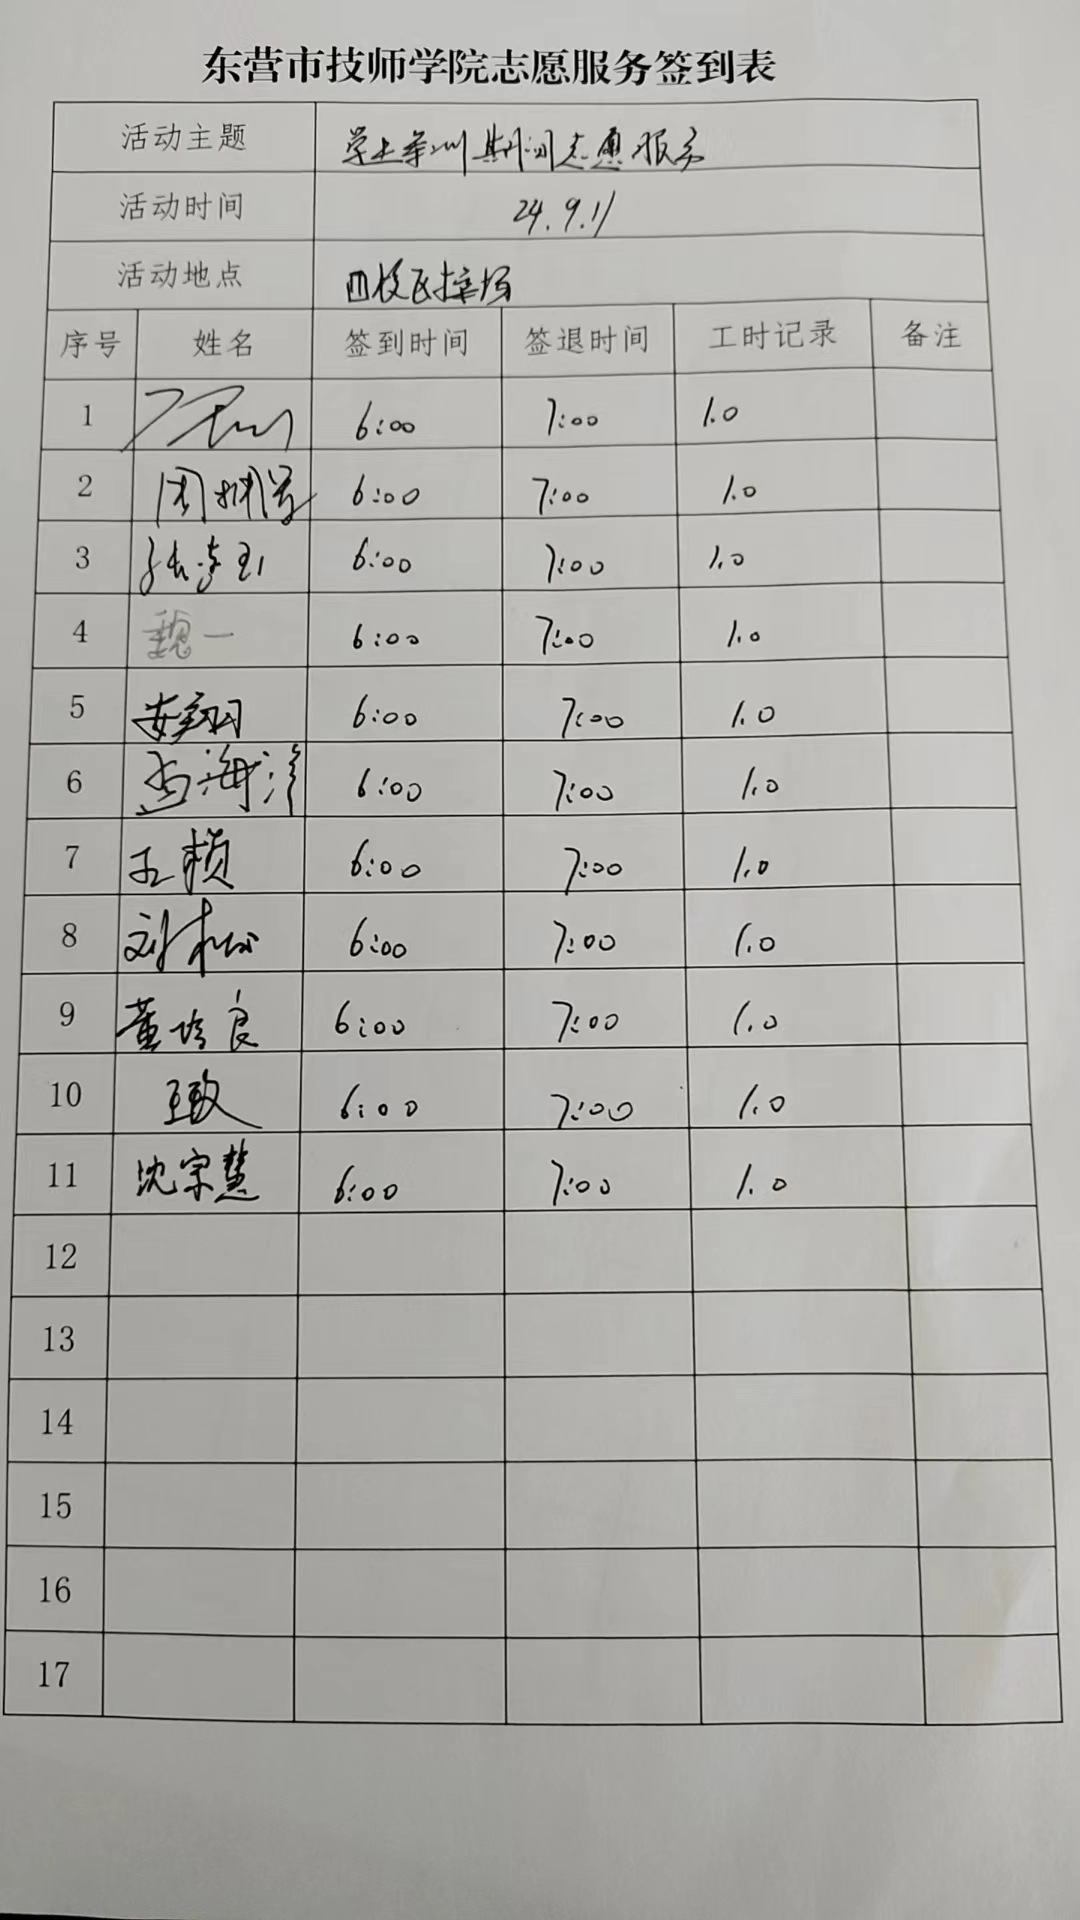 东营市技师学院志愿服务签到表
活动主题 学生军训期间志愿服务
活动时间 24.9.11
活动地点 四校区操场
序号 姓名 签到时间 签退时间 工时记录 备注
1 6:00 7:00 1.0
2 周 6:00 7:00 1.0
3 张 6:00 7:00 1.0
4 魏一 6:00 7:00 1.0
5 安翔 6:00 7:00 1.0
6 孟海洋 6:00 7:00 1.0
7 王桢 6:00 7:00 1.0
8 刘松 6:00 7:00 1.0
9 董 良 6:00 7:00 1.0
10 王政 6:00 7:00 1.0
11 沈宗慧 6:00 7:00 1.0
12
13
14
15
16
17